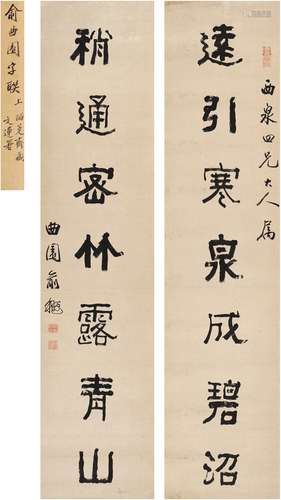 遠引寒泉成碧沼
西泉四兄大人属
稍通密竹露青山
曲園俞樾
俞曲園字联